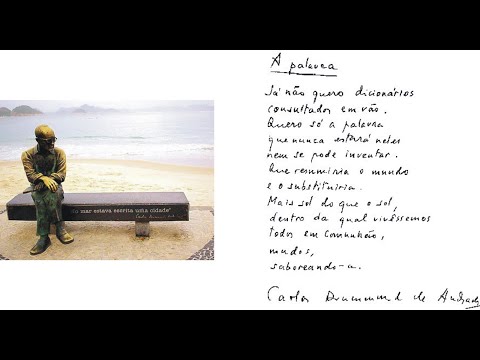 no mar estava escrita uma cidade"
A palavra
Já não quero dicionários
consultados em vão.
Quero só a palavra
que nunca estará neles
nem se pode inventar.
Que resumiria o mundo
e o substituiria.
Mais sol do que o sol,
dentro da qual vivêssemos
todos em comunhão,
mudos,
saboreando-a.
Carlos Drummond de Andrade